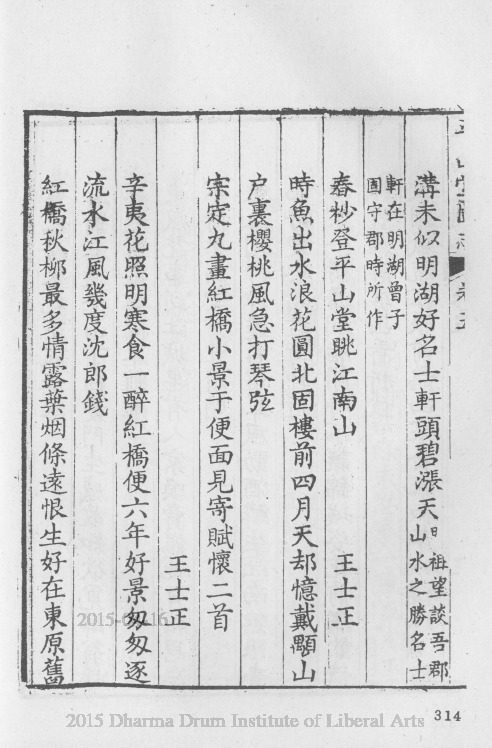 溝未似明湖好名士軒頭碧漲天
日祖望談吾郡
山水之勝名士
軒在明湖曾子
固守郡時所作
春杪登平山堂眺江南山 王士正
時魚出水浪花圓北固樓前四月天却憶戴顒山
户裏櫻桃風急打琴弦
宗定九畫紅橋小景于便面見寄賦懷二首
王士正
辛夷花照明寒食一醉紅橋便六年好景匆匆逐
流水江風幾度沈郎錢
紅橋秋桺最多情露葉烟條遠恨生好在東原舊
314
2015 Dharma Drum Institute of Liberal Arts